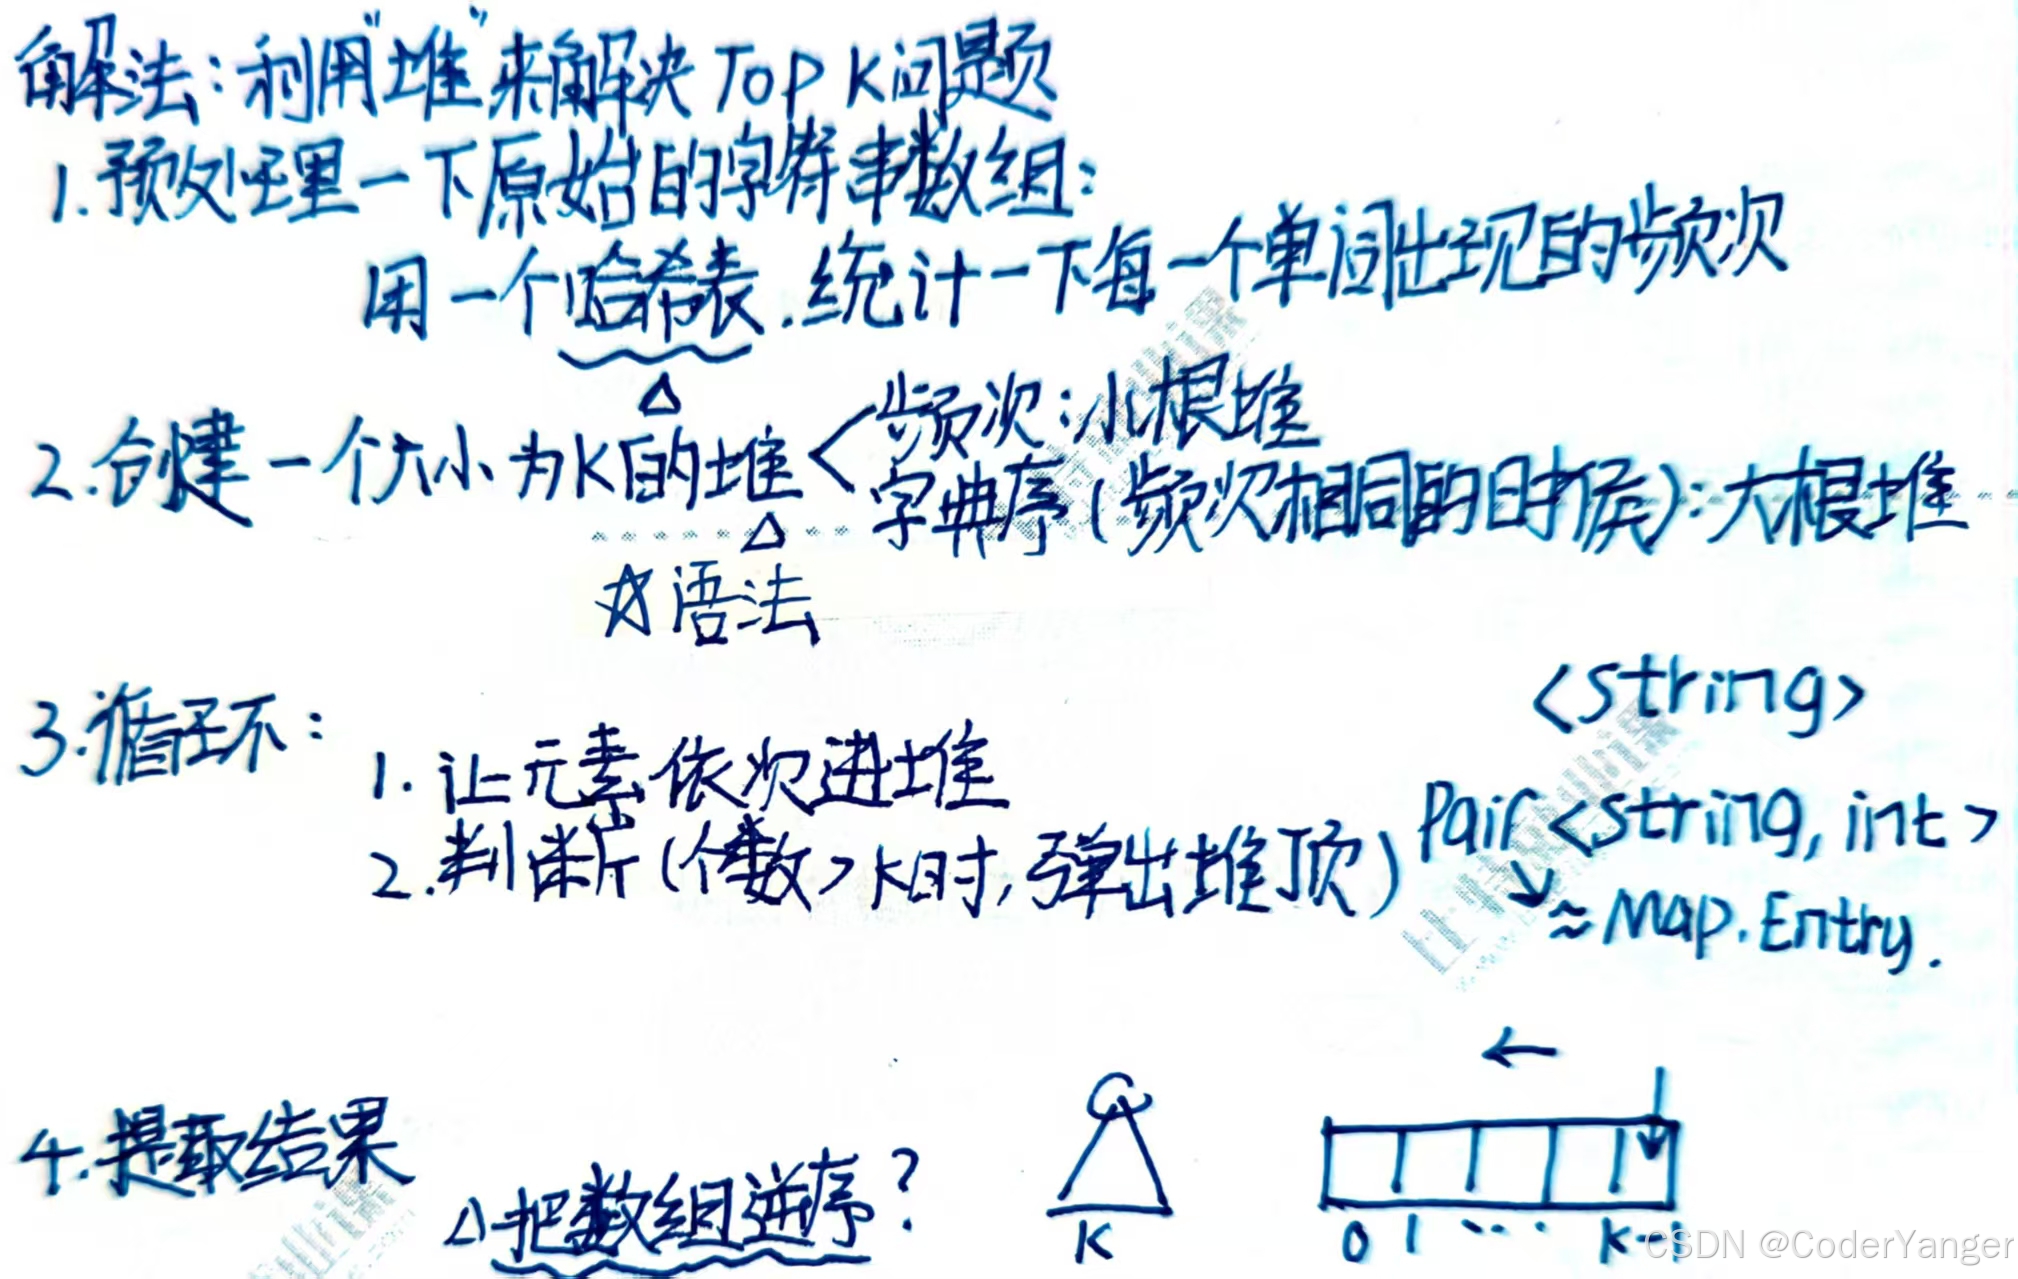 解法：利用"堆"来解决 Top K问题
1. 预处理一下原始的字符串数组：
用一个哈希表，统计一下每一个单词出现的频次
2. 创建一个大小为K的堆 < 频次：小根堆
字典序（频次相同的时候）：大根堆
☆语法
<string>
3. 循环：
1. 让元素依次进堆
2. 判断（个数>K时，弹出堆顶）
Pair<string, int>
≈ Map.Entry.
4. 提取结果
△把数组逆序？
K
0 1 ... K-1
CSDN @CoderYanger